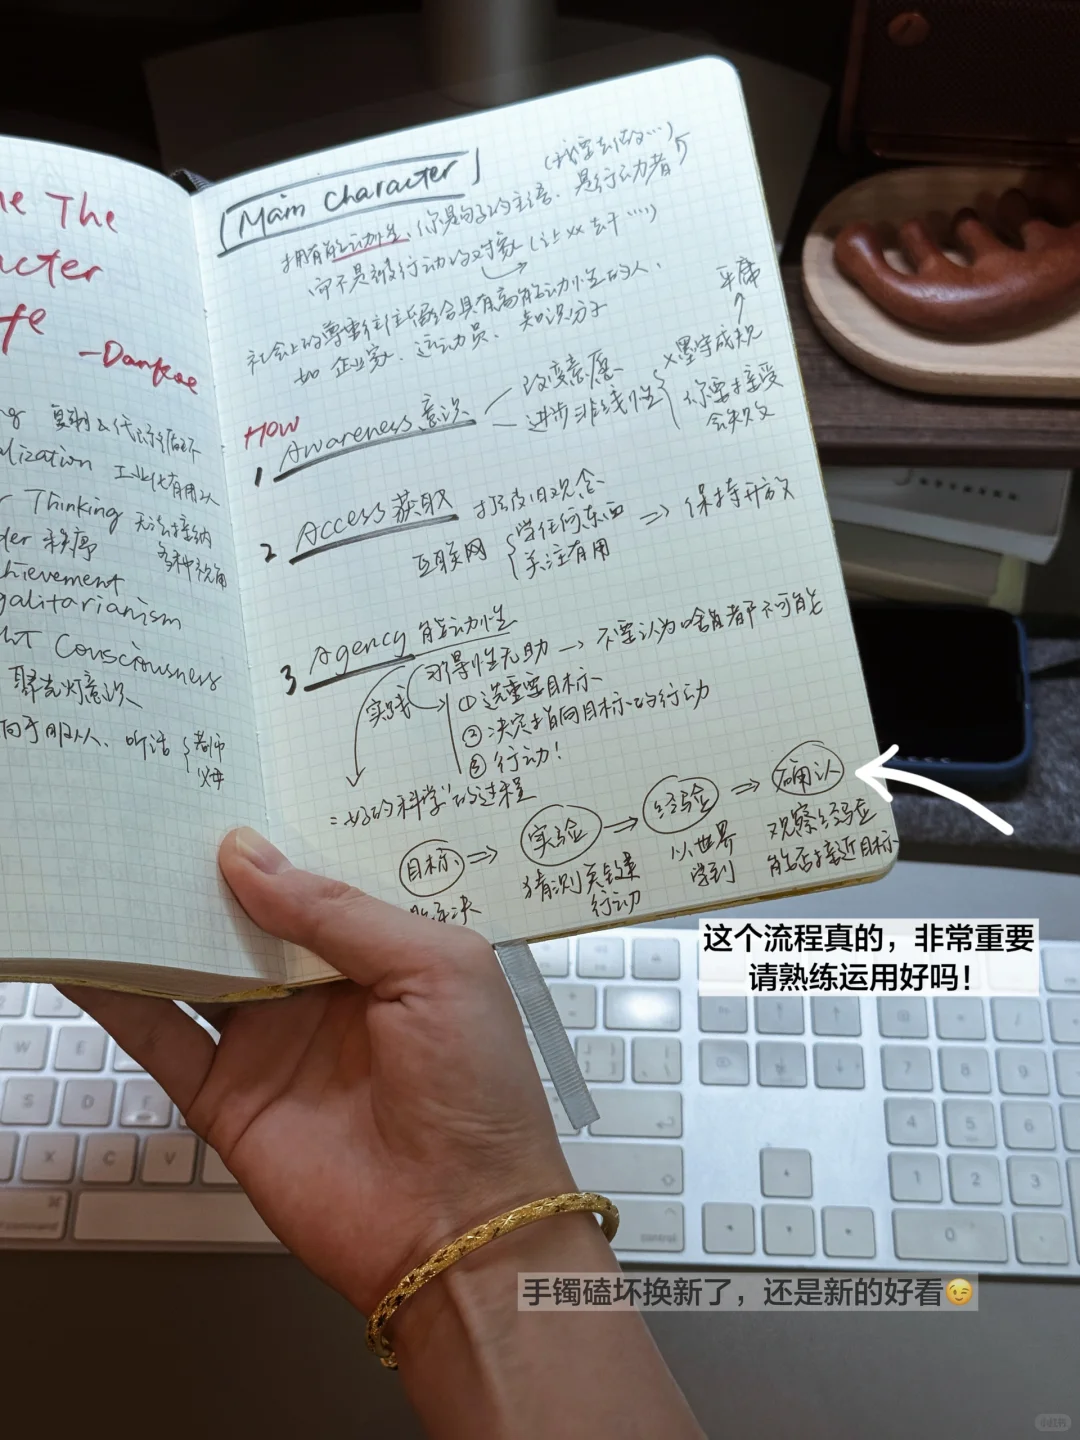 The
-Dankoe
复制&代际循环
工业化有用的人
Thinking 无法接纳
秩序 各种视角
Consciousness
聚光灯意识
服从、听话 { 老师
父母
Main Character
(我要去做…)
拥有能动性、你是句子的主语、是行动者
而不是被行动的对象 (让xx去干…)
社会上的尊重往往都给具有高能动性的人、
如 企业家、运动员、知识分子
HOW
1 Awareness 意识
改变意愿
进步非线性
平庸
×墨守成规
你要接受
会失败
2 Access 获取
打破旧观念
互联网
学任何东西
关注有用
⇒ 保持开放
3 Agency 能动性
习得性无助 → 不要认为啥自都不可能
实践
① 选重要目标
② 决定指向目标的行动
③ 行动!
= "好的科学"的过程
目标 ⇒ 实验 ⇒ 经验 ⇒ 确认
猜测关键
行动
从世界
学到
观察经验
能否接近目标
这个流程真的，非常重要
请熟练运用好吗！
W E
S D F
X C V
command
control
7 8 9
4 5 6
1 2 3
0
手镯磕坏换新了，还是新的好看😉
小红书